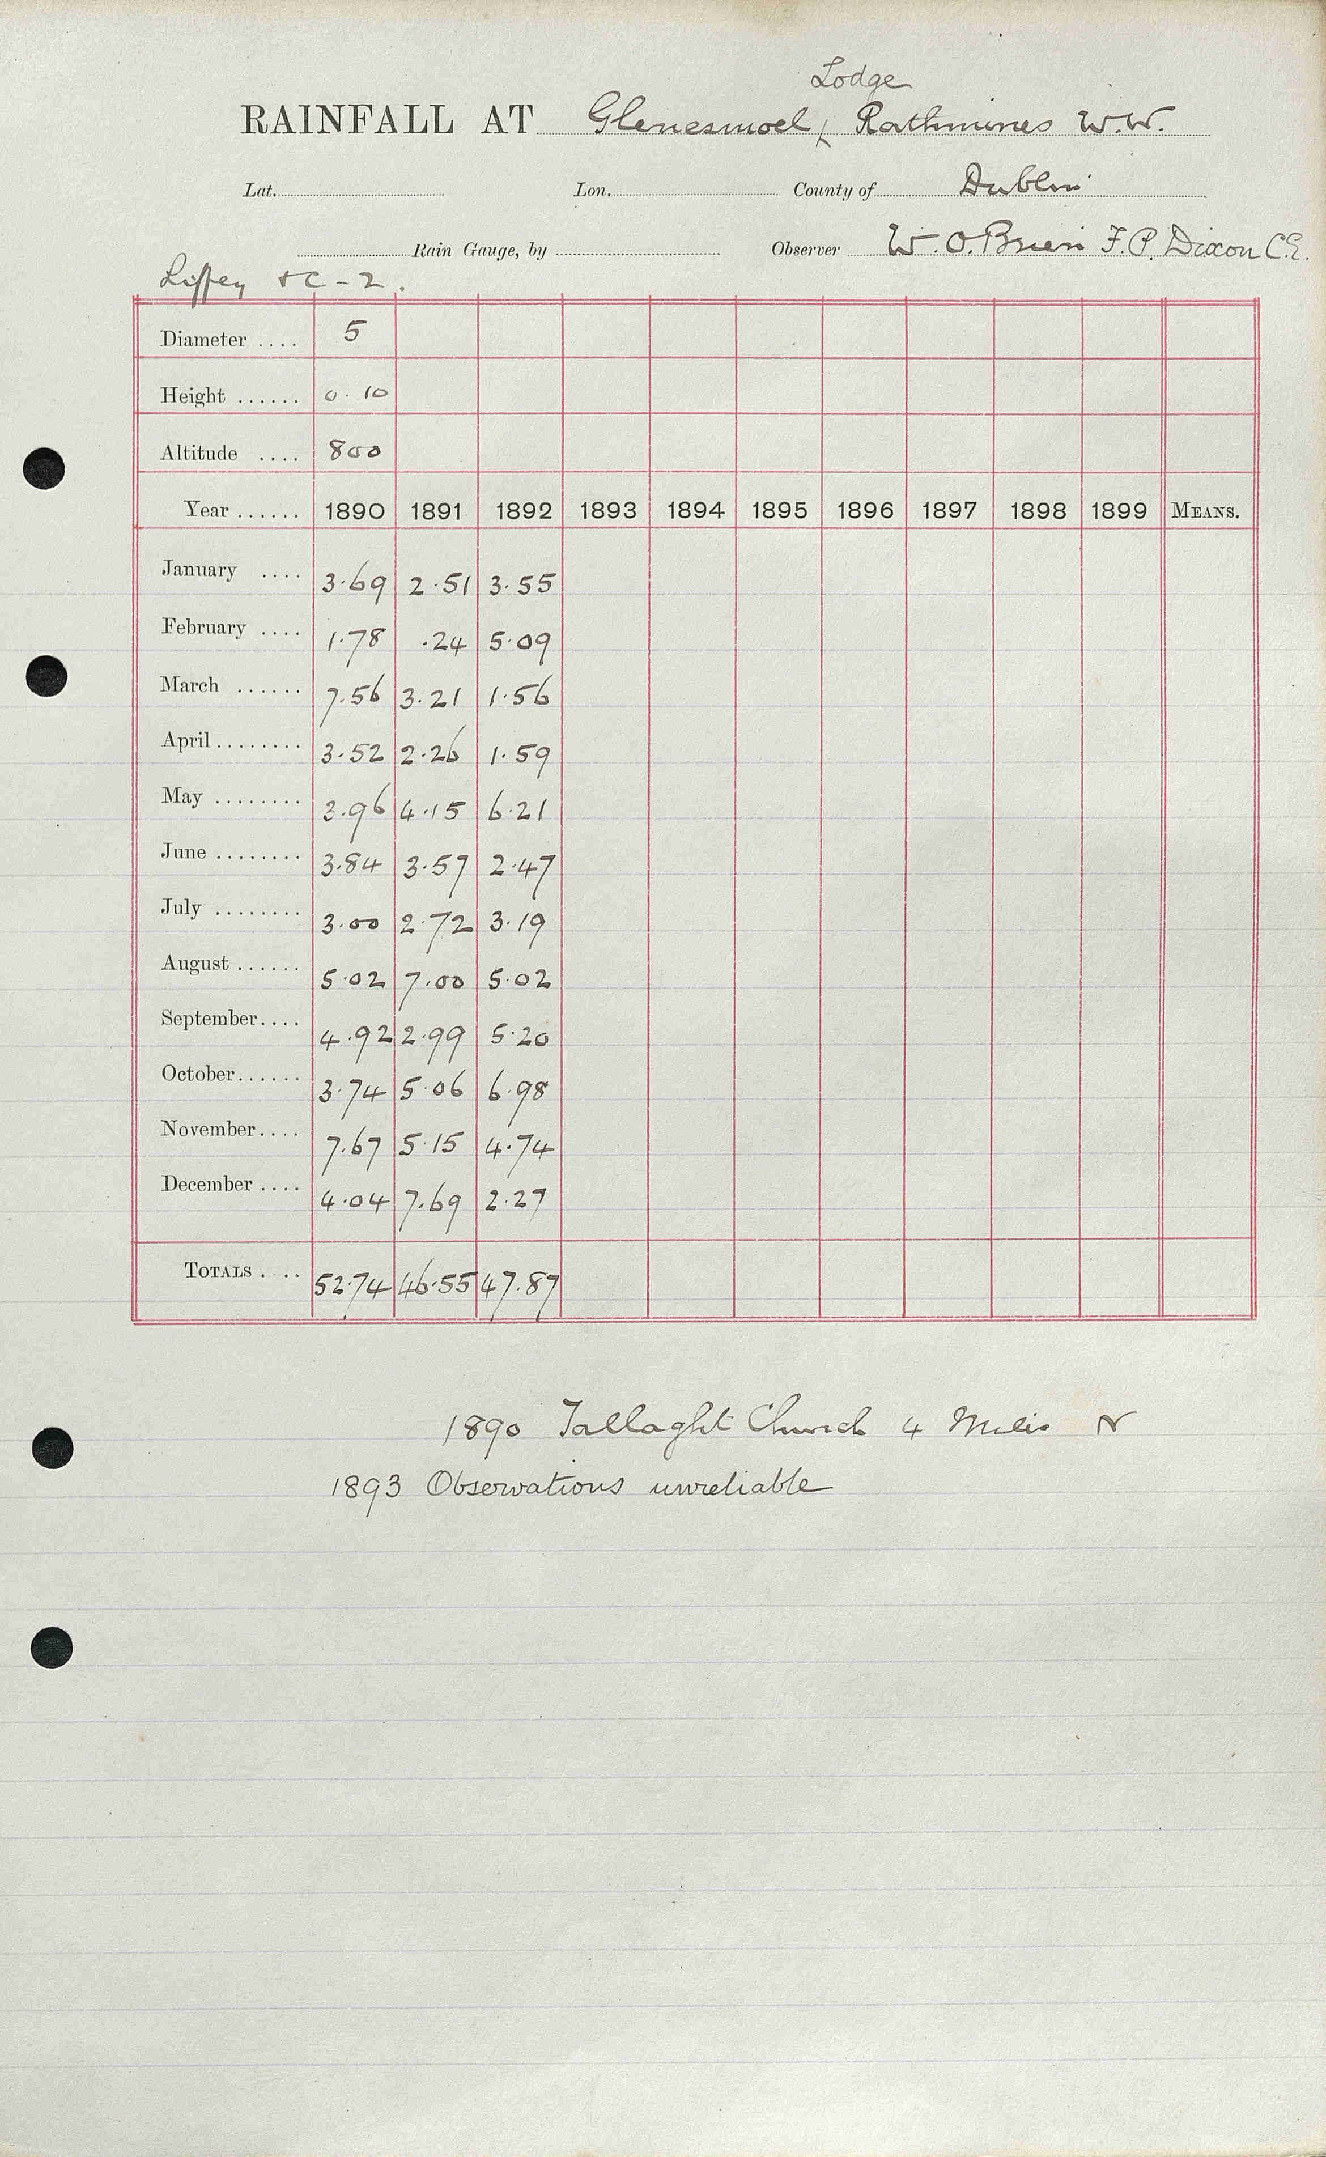 Lodge
RAINFALL AT Glenesmoel, Rathmines W.W.
Lat. Lon. County of Dublin
Rain Gauge, by Observer W. O.Brien F.P. Dixon C.E.
Liffey &c - 2.
Diameter .... 5
Height ...... 0.10
Altitude .... 800
Year ...... 1890 1891 1892 1893 1894 1895 1896 1897 1898 1899 MEANS.
January .... 3.69 2.51 3.55
February .... 1.78 .24 5.09
March ...... 7.56 3.21 1.56
April ........ 3.52 2.26 1.59
May ........ 3.96 4.15 6.21
June ........ 3.84 3.57 2.47
July ........ 3.00 2.72 3.19
August ...... 5.02 7.00 5.02
September.... 4.92 2.99 5.20
October...... 3.74 5.06 6.98
November.... 7.67 5.15 4.74
December .... 4.04 7.69 2.27
TOTALS .... 52.74 46.55 47.87
1890 Tallaght Church 4 Miles N
1893 Observations unreliable